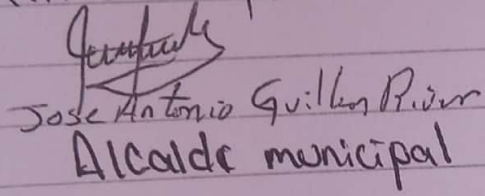 Jose Antonio Guillen
Alcalde municipal